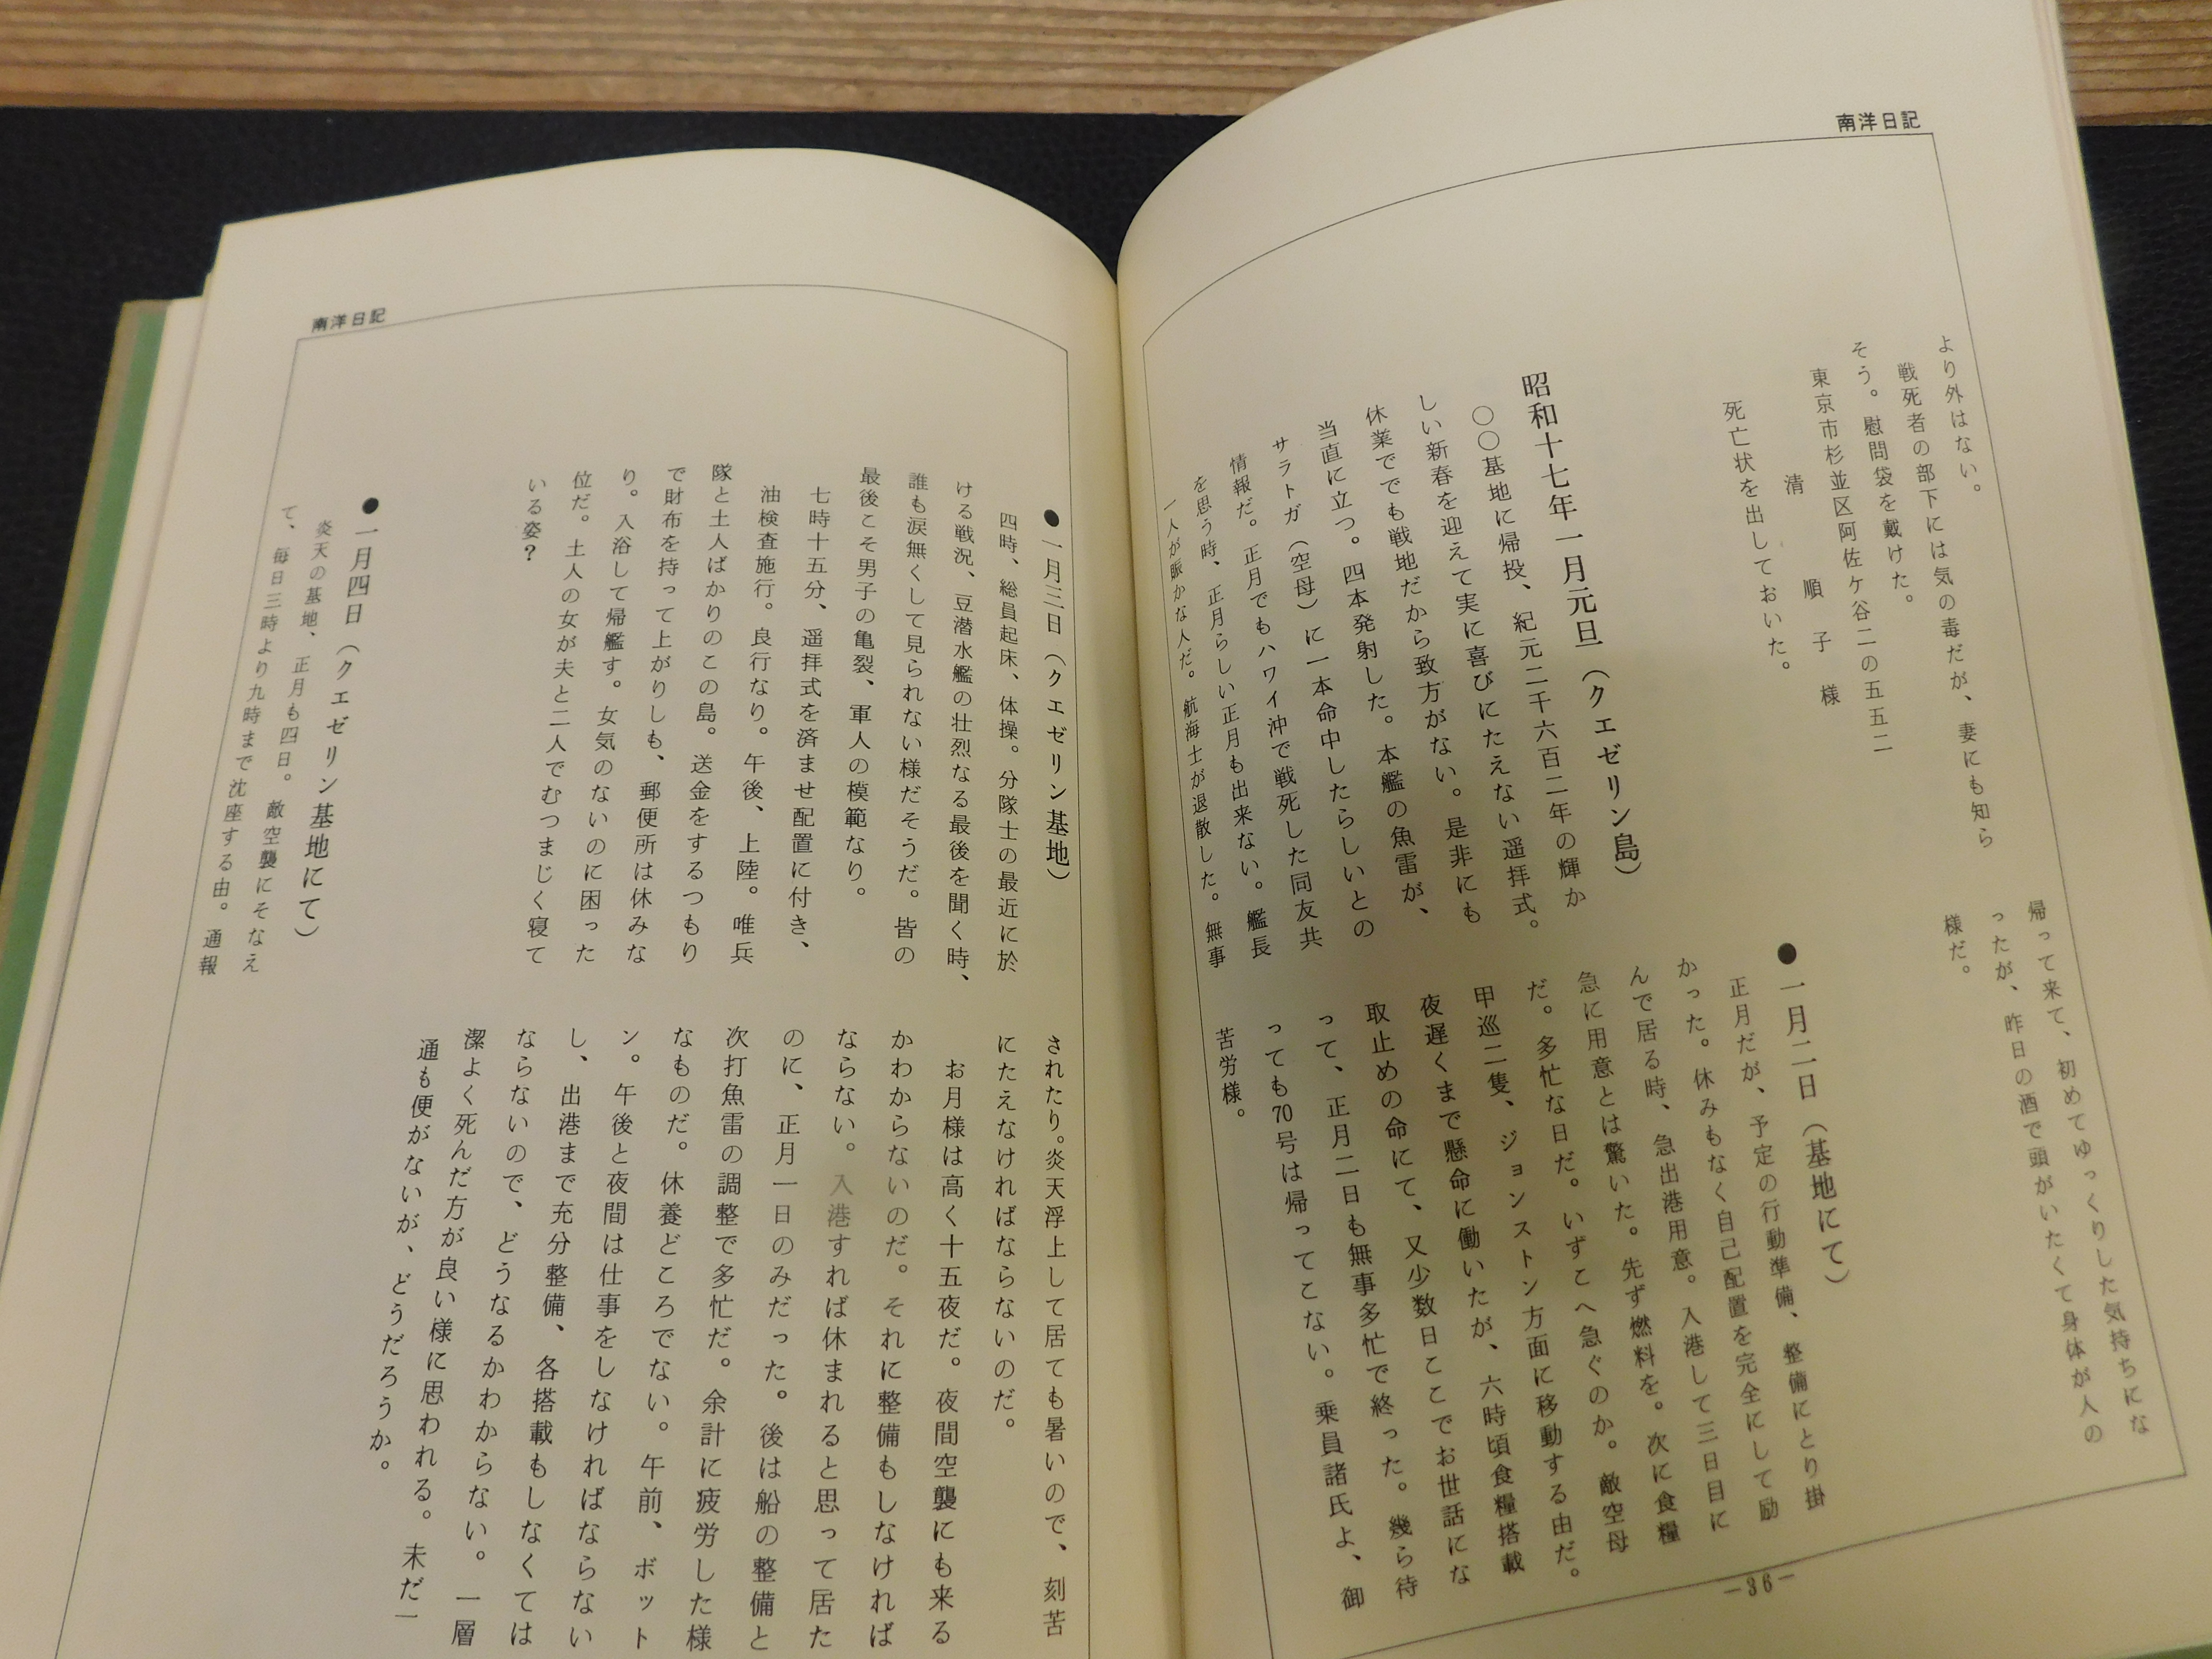 南洋日記
より外はない。
戦死者の部下には気の毒だが、妻にも知ら
そう。慰問袋を戴けた。
東京市杉並区阿佐ケ谷二の五五二
清　順子様
死亡状を出しておいた。
昭和十七年一月元旦（クエゼリン島）
〇〇基地に帰投、紀元二千六百二年の輝か
しい新春を迎えて実に喜びにたえない遥拝式。
休業ででも戦地だから致方がない。是非にも
当直に立つ。四本発射した。本艦の魚雷が、
サラトガ（空母）に一本命中したらしいとの
情報だ。正月でもハワイ沖で戦死した同友共
を思う時、正月らしい正月も出来ない。艦長
一人が賑かな人だ。航海士が退散した。無事
帰って来て、初めてゆっくりした気持ちにな
ったが、昨日の酒で頭がいたくて身体が人の
様だ。
●一月二日（基地にて）
正月だが、予定の行動準備、整備にとり掛
かった。休みもなく自己配置を完全にして励
んで居る時、急出港用意。入港して三日目に
急に用意とは驚いた。先ず燃料を。次に食糧
だ。多忙な日だ。いずこへ急ぐのか。敵空母
甲巡二隻、ジョンストン方面に移動する由だ。
夜遅くまで懸命に働いたが、六時頃食糧搭載
取止めの命にて、又少数日ここでお世話にな
って、正月二日も無事多忙で終った。幾ら待
っても70号は帰ってこない。乗員諸氏よ、御
苦労様。
－36－
南洋日記
●一月三日（クエゼリン基地）
四時、総員起床、体操。分隊士の最近に於
ける戦況、豆潜水艦の壮烈なる最後を聞く時、
誰も涙無くして見られない様だそうだ。皆の
最後こそ男子の亀裂、軍人の模範なり。
七時十五分、遥拝式を済ませ配置に付き、
油検査施行。良行なり。午後、上陸。唯兵
隊と土人ばかりのこの島。送金をするつもり
で財布を持って上がりしも、郵便所は休みな
り。入浴して帰艦す。女気のないのに困った
位だ。土人の女が夫と二人でむつまじく寝て
いる姿？
●一月四日（クエゼリン基地にて）
炎天の基地、正月も四日。敵空襲にそなえ
て、毎日三時より九時まで沈座する由。通報
されたり。炎天浮上して居ても暑いので、刻苦
にたえなければならないのだ。
お月様は高く十五夜だ。夜間空襲にも来る
かわからないのだ。それに整備もしなければ
ならない。入港すれば休まれると思って居た
のに、正月一日のみだった。後は船の整備と
次打魚雷の調整で多忙だ。余計に疲労した様
なものだ。休養どころでない。午前、ボット
ン。午後と夜間は仕事をしなければならない
し、出港まで充分整備、各搭載もしなくては
ならないので、どうなるかわからない。一層
潔よく死んだ方が良い様に思われる。未だ一
通も便がないが、どうだろうか。